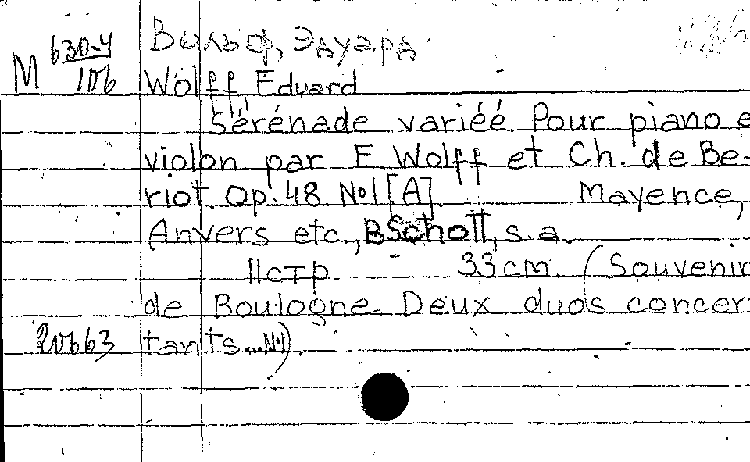 М 630-4/106 Вильф, Эдуард.
Wolff Eduard
Sérénade variéé. Pour piano e
violon par E. Wolff et Ch. de Be-
riot. Op. 48 №1 [A]. Mayence,
Anvers etc., B. Schott, s.a.
11 стр. 33 cm. (Souvenir
de Boulogne. Deux duos concer
20663 tants...№1).